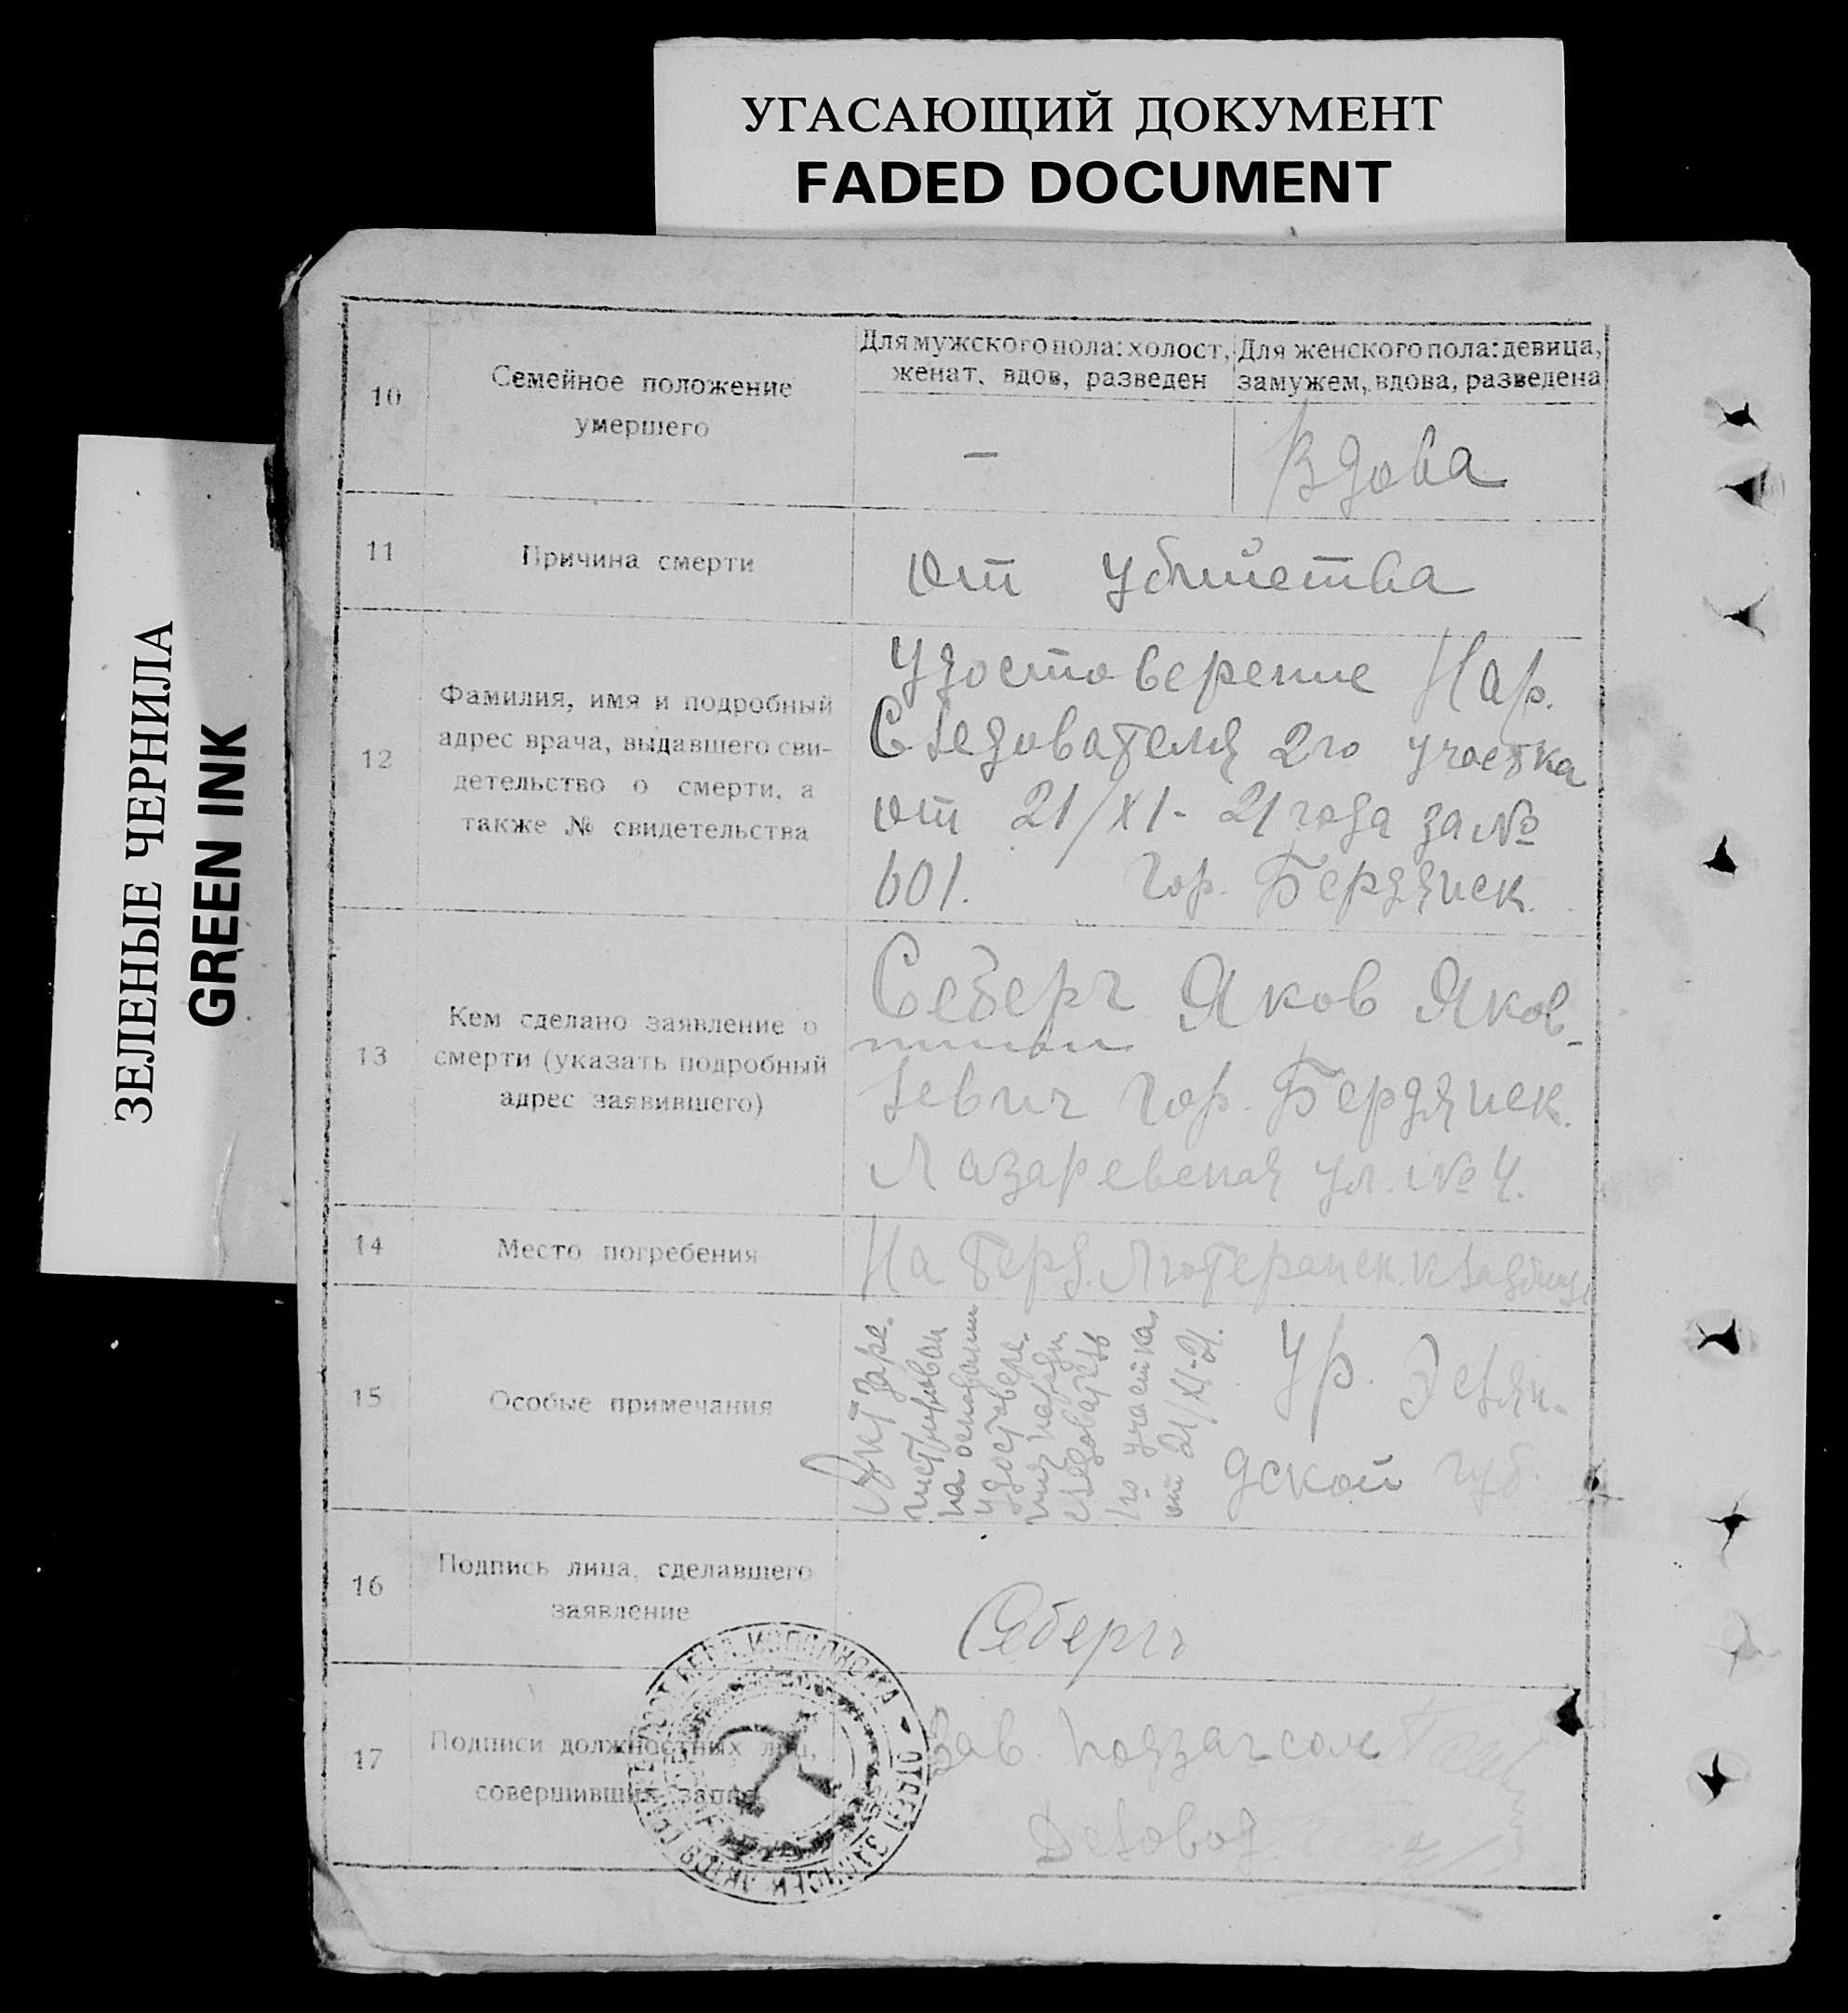 УГАСАЮЩИЙ ДОКУМЕНТ
FADED DOCUMENT
ЗЕЛЕНЫЕ ЧЕРНИЛА
GREEN INK
10
Семейное положение
умершего
Для мужского пола: холост,
женат, вдов, разведен
Для женского пола: девица,
замужем, вдова, разведена
—
Вдова
11
Причина смерти
от убийства
12
Фамилия, имя и подробный
адрес врача, выдавшего сви-
детельство о смерти, а
также № свидетельства
Удостоверение Нар.
Следователя 2го участка
от 21/XI-21 года за №
601. Гор. Бердянск.
13
Кем сделано заявление о
смерти (указать подробный
адрес заявившего)
Себерг Яков Яков-
левич Гор. Бердянск.
Лазаревская ул. № 4.
14
Место погребения
На Берд. Лютеранск. кладбище
15
Особые примечания
Акт заре-
гистрирован
на основании
удостовере-
ния нар.
следователь
1го участка
от 21/XI-21.
Ур. Эстлян-
дской губ.
16
Подпись лица, сделавшего
заявление
Себергъ
17
Подписи должностных лиц,
совершивших запись
Зав. подзагсом
Деловод.
ОТДЕЛ ЗАПИСЕЙ АКТОВ